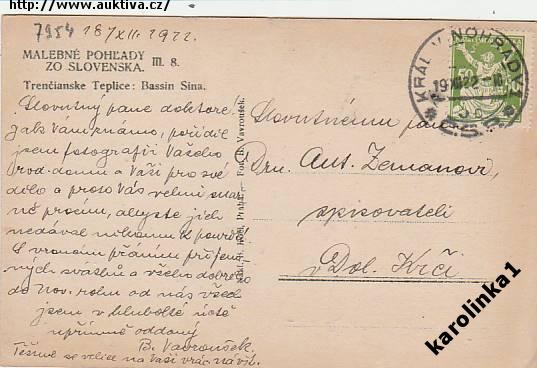 http://www.auktiva.cz/
7954 18/XII. 1922.
MALEBNÉ POHĽADY
ZO SLOVENSKA. III. 8.
Trenčianske Teplice: Bassin Sina.
Slovutný pane doktore!
Jak Vám známo, pořídil
jsem fotografii Vašeho
rod. domu a Vaší pro své
dílo a proto Vás velmi
prosím, abyste jich
nedával nikomu k
S vroucím přáním
svátků a všeho dobrého
do Nov. roku od nás všech
jsem v hluboké úctě
upřímně oddaný
B. Vavroušek.
Těšíme se velice na Vaši návšt.
Fot. B. Vavroušek.
Praha
KRÁL. VINOHRADY
19 XII 22
Č.S.R.
Slovutnému pánu
Dru. Ant. Zemanovi,
spisovateli
v Dol. Krči
karolinka1